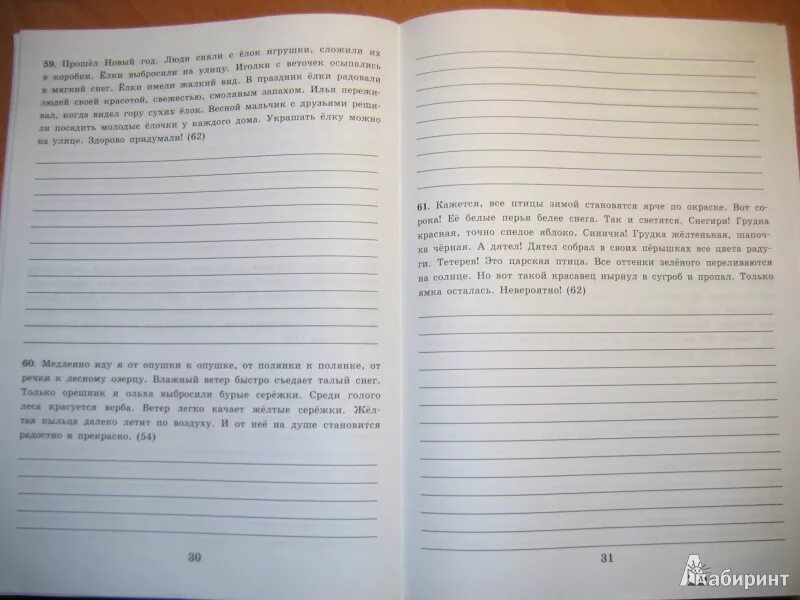 59. Прошёл Новый год. Люди сняли с ёлок игрушки, сложили их
в коробки. Ёлки выбросили на улицу. Иголки с веточек осыпались
в мягкий снег. Ёлки имели жалкий вид. В праздник ёлки радовали
людей своей красотой, свежестью, смоляным запахом. Илья пережи-
вал, когда видел гору сухих ёлок. Весной мальчик с друзьями реши-
ли посадить молодые ёлочки у каждого дома. Украшать ёлку можно
на улице. Здорово придумали! (62)
60. Медленно иду я от опушки к опушке, от полянки к полянке, от
речки к лесному озерцу. Влажный ветер быстро съедает талый снег.
Только орешник и ольха выбросили бурые серёжки. Среди голого
леса красуется верба. Ветер легко качает жёлтые серёжки. Жёл-
тая пыльца далеко летит по воздуху. И от неё на душе становится
радостно и прекрасно. (54)
30
61. Кажется, все птицы зимой становятся ярче по окраске. Вот со-
рока! Её белые перья белее снега. Так и светятся. Снегири! Грудка
красная, точно спелое яблоко. Синичка! Грудка жёлтенькая, шапоч-
ка чёрная. А дятел! Дятел собрал в своих пёрышках все цвета раду-
ги. Тетерев! Это царская птица. Все оттенки зелёного переливаются
на солнце. Но вот такой красавец нырнул в сугроб и пропал. Только
ямка осталась. Невероятно! (62)
31
Лабиринт